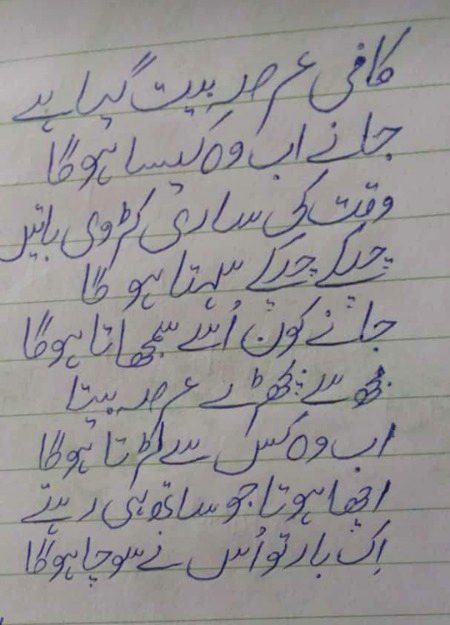 کافی عرصہ بیت گیا ہے
جانے اب وہ کیسا ہوگا
وقت کی ساری کڑوی باتیں
چپکے چپکے سہتا ہو گا
جانے کون اُسے سمجھاتا ہوگا
مجھ سے بچھڑے عرصہ بیتا
اب وہ کس سے لڑتا ہوگا
اچھا ہوتا جو ساتھ ہی رہتے
اِک بار تو اُس نے سوچا ہوگا